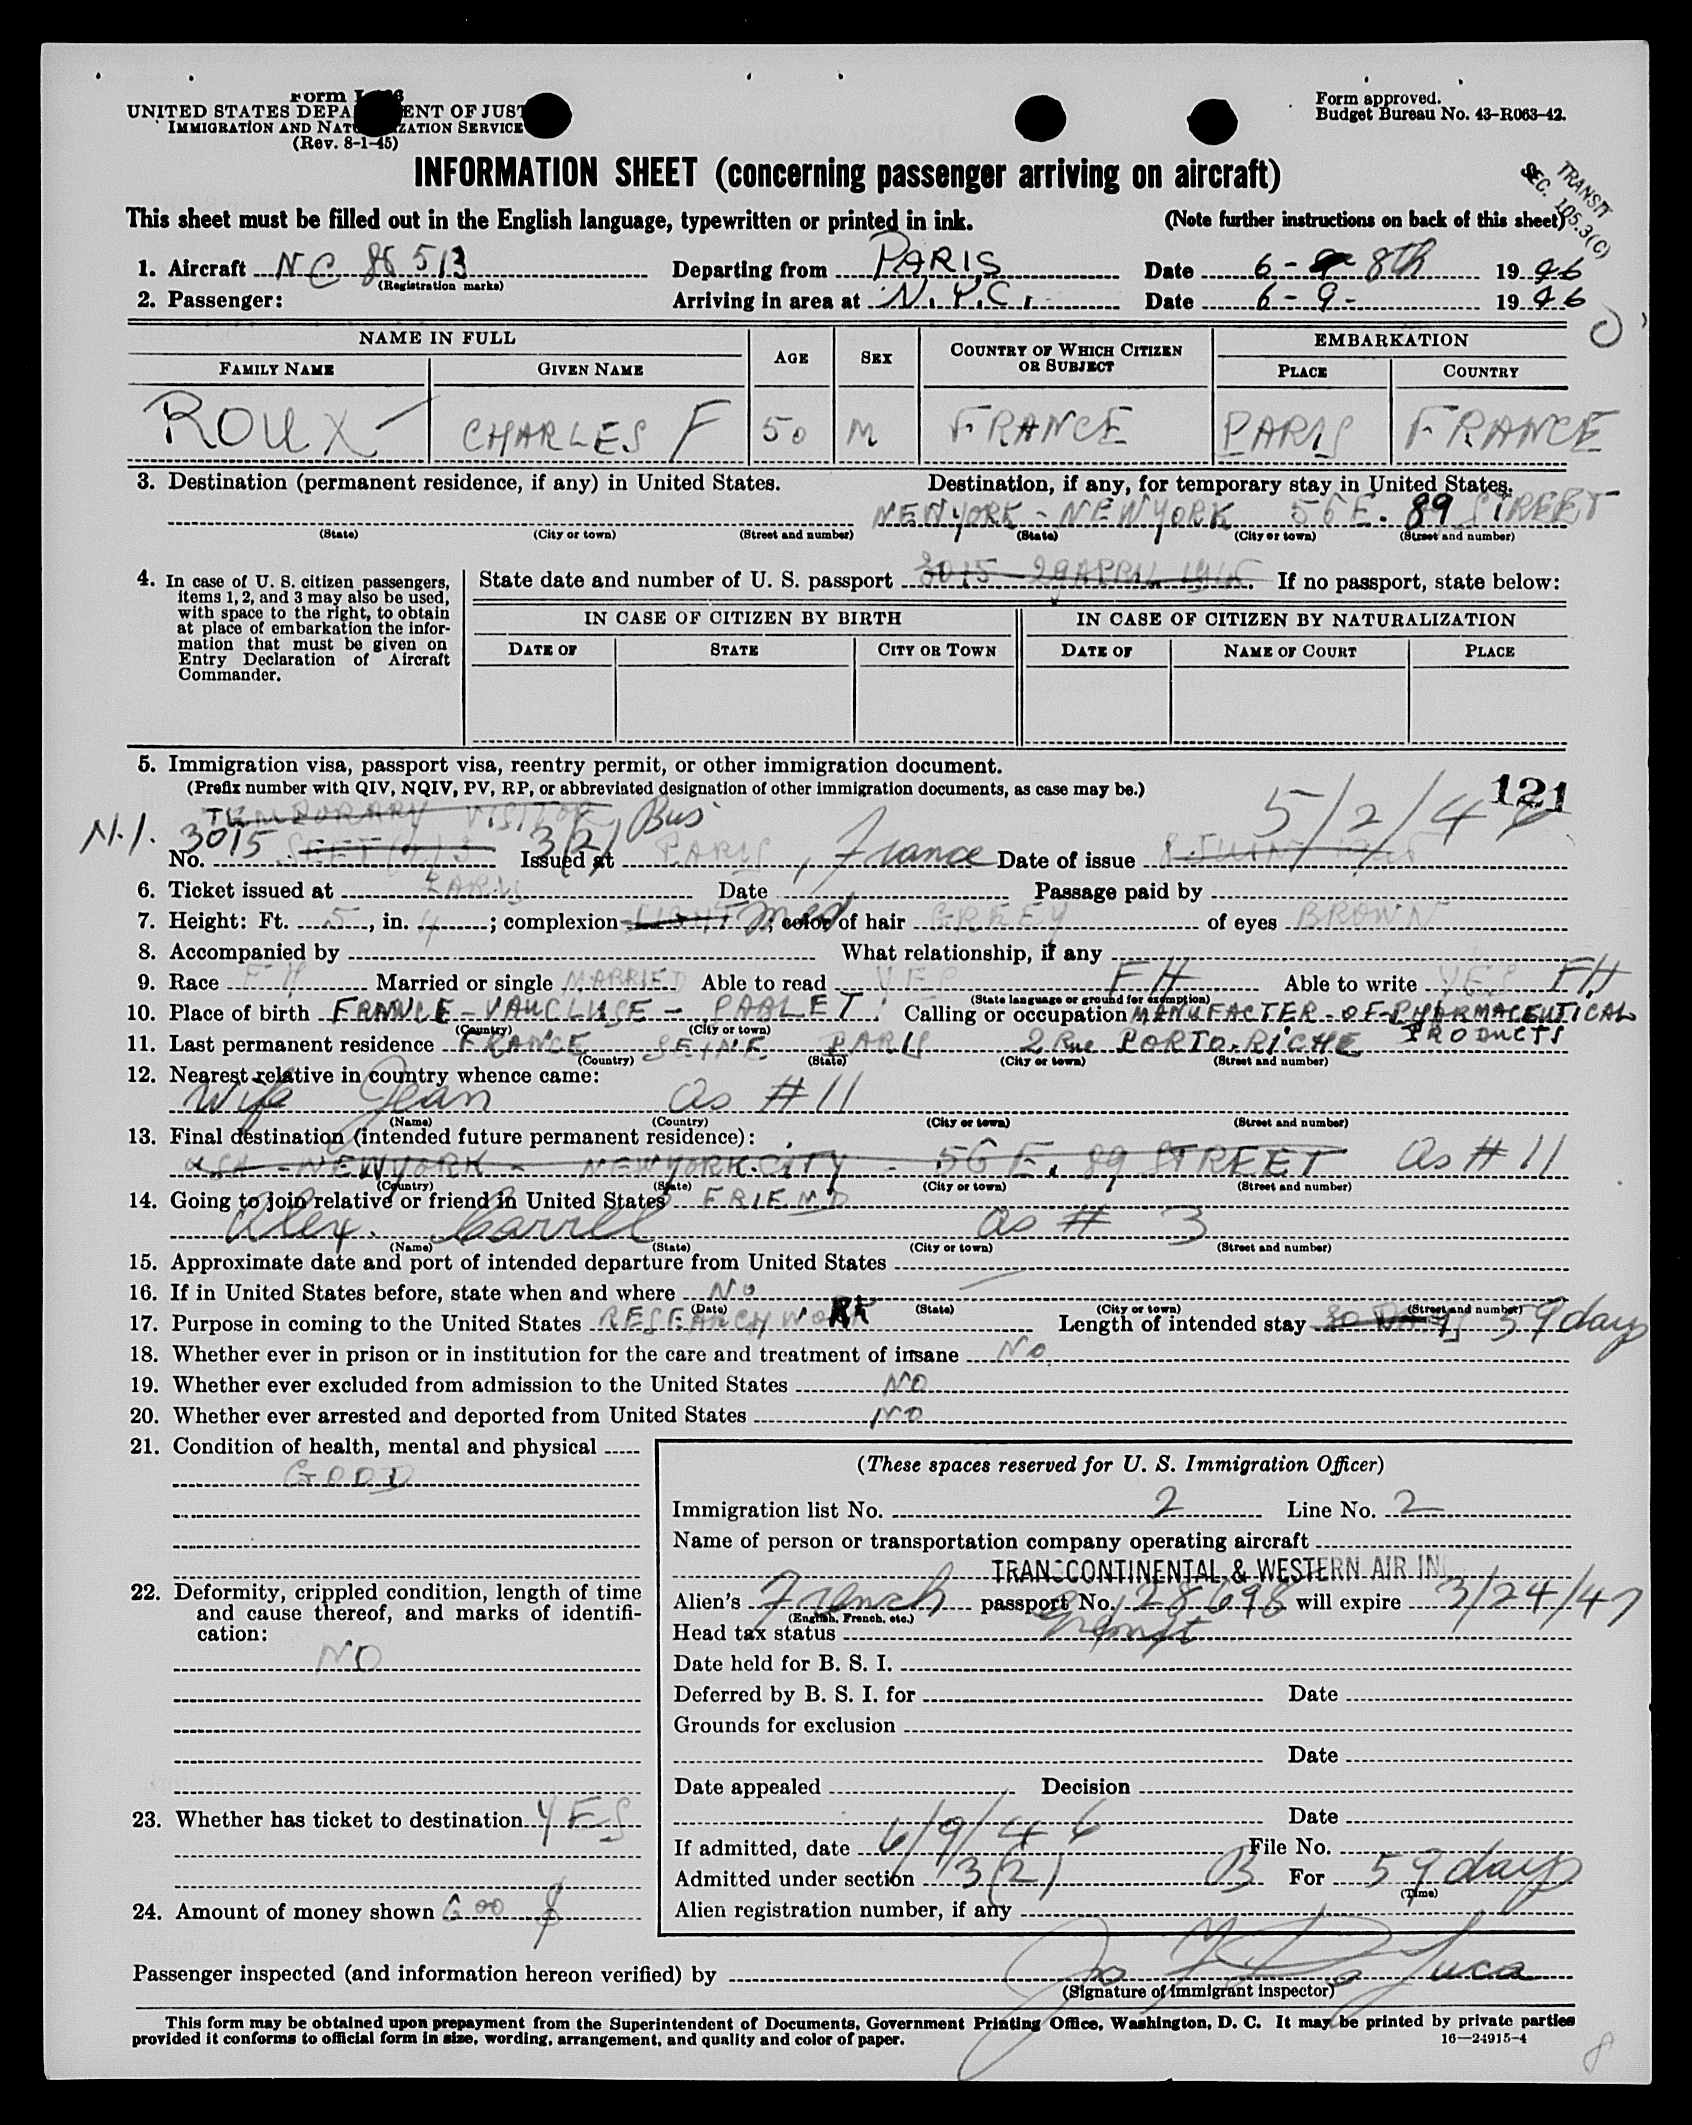 Form I-466
UNITED STATES DEPARTMENT OF JUSTICE
IMMIGRATION AND NATURALIZATION SERVICE
(Rev. 8-1-45)
Form approved.
Budget Bureau No. 43-R063-42.
INFORMATION SHEET (concerning passenger arriving on aircraft)
TRANSIT
SEC. 105.3(C)
This sheet must be filled out in the English language, typewritten or printed in ink. (Note further instructions on back of this sheet)
1. Aircraft NC 86513 Departing from PARIS Date 6- 8th 1946
(Registration marks)
2. Passenger: Arriving in area at N.Y.C. Date 6-9- 1946
NAME IN FULL AGE SEX COUNTRY OF WHICH CITIZEN OR SUBJECT EMBARKATION
FAMILY NAME GIVEN NAME PLACE COUNTRY
ROUX CHARLES F 50 M FRANCE PARIS FRANCE
3. Destination (permanent residence, if any) in United States. Destination, if any, for temporary stay in United States.
NEWYORK - NEWYORK 56 E. 89 STREET
(State) (City or town) (Street and number) (State) (City or town) (Street and number)
4. In case of U. S. citizen passengers, items 1, 2, and 3 may also be used, with space to the right, to obtain at place of embarkation the information that must be given on Entry Declaration of Aircraft Commander.
State date and number of U. S. passport 3015 - 29 APRIL If no passport, state below:
IN CASE OF CITIZEN BY BIRTH IN CASE OF CITIZEN BY NATURALIZATION
DATE OF STATE CITY OR TOWN DATE OF NAME OF COURT PLACE
5. Immigration visa, passport visa, reentry permit, or other immigration document.
(Prefix number with QIV, NQIV, PV, RP, or abbreviated designation of other immigration documents, as case may be.) 121
TEMPORARY VISITOR Bus 5/2/4
N.I. No. 3015 3(2) Issued at PARIS, France Date of issue
6. Ticket issued at PARIS Date Passage paid by
7. Height: Ft. 5, in. 4; complexion LIGHT Med; color of hair GREY of eyes BROWN
8. Accompanied by What relationship, if any
9. Race FH Married or single MARRIED Able to read YES FH Able to write YES FH
(State language or ground for exemption)
10. Place of birth FRANCE - VAUCLUSE - Calling or occupation MANUFACTER - OF - PHARMACEUTICAL
(Country) (City or town) PRODUCTS
11. Last permanent residence FRANCE SEINE PARIS 2 Rue PORTO-RICHE
(Country) (State) (City or town) (Street and number)
12. Nearest relative in country whence came:
Wife Jean as # 11
(Name) (Country) (City or town) (Street and number)
13. Final destination (intended future permanent residence):
USA - NEWYORK - NEWYORK.CITY - 56 E. 89 STREET as # 11
(Country) (State) (City or town) (Street and number)
14. Going to join relative or friend in United States FRIEND
Alex. Carrell as # 3
(Name) (State) (City or town) (Street and number)
15. Approximate date and port of intended departure from United States
16. If in United States before, state when and where No
(Date) (State) (City or town) (Street and number)
17. Purpose in coming to the United States RESEARCH WORK Length of intended stay 30 DAYS 59 days
18. Whether ever in prison or in institution for the care and treatment of insane No.
19. Whether ever excluded from admission to the United States NO
20. Whether ever arrested and deported from United States NO
21. Condition of health, mental and physical
GOOD
22. Deformity, crippled condition, length of time and cause thereof, and marks of identification:
NO
23. Whether has ticket to destination YES
24. Amount of money shown 600 $
(These spaces reserved for U. S. Immigration Officer)
Immigration list No. 2 Line No. 2
Name of person or transportation company operating aircraft
TRANSCONTINENTAL & WESTERN AIR IN
Alien's French passport No. 28698 will expire 3/24/47
(English, French, etc.)
Head tax status Exempt
Date held for B. S. I.
Deferred by B. S. I. for Date
Grounds for exclusion
Date
Date appealed Decision
Date
If admitted, date 6/9/46 File No.
Admitted under section 3(2) B For 59 days
(Time)
Alien registration number, if any
Passenger inspected (and information hereon verified) by
(Signature of immigrant inspector)
This form may be obtained upon prepayment from the Superintendent of Documents, Government Printing Office, Washington, D. C. It may be printed by private parties
provided it conforms to official form in size, wording, arrangement, and quality and color of paper. 16—24915-4
8